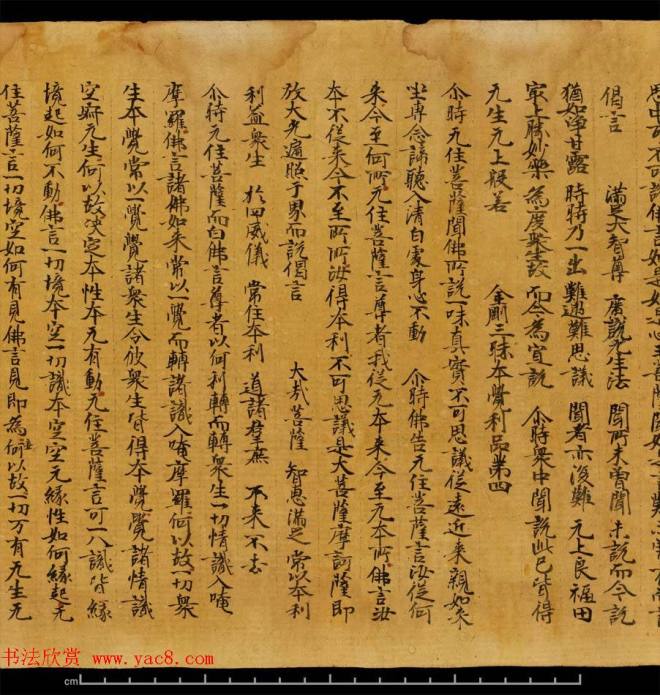 偈言 滿足大智尊 廣說无生法 聞所未曾聞 未說而今說
猶如淨甘露 時時乃一出 難遇難思議 聞者亦復難 无上良福田
冣上勝妙藥 為度眾生故 而今為宣說 尒時眾中聞說此已皆得
无生无上般若 金剛三昧本覺利品第四
尒時无住菩薩聞佛所說一味真實不可思議從遠近來親如來
坐專念諦聽入清白處身心不動 尒時佛告无住菩薩言汝從何
來今至何所无住菩薩言尊者我從无本來今至无本所佛言汝
本不從來今不至所汝得本利不可思議是大菩薩摩訶薩即
放大光遍照千界而說偈言 大哉菩薩 智惠滿足 常以本利
利益眾生 於四威儀 常住本利 道諸群庶 不來不去
尒時无住菩薩而白佛言尊者以何利轉而轉眾生一切情識入唵
摩羅佛言諸佛如來常以一覺而轉諸識入唵摩羅何以故一切眾
生本覺常以一覺覺諸眾生令彼眾生皆得本覺覺諸情識
空寂无生何以故決定本性本无有動无住菩薩言可一八識皆緣
境起如何不動佛言一切境本空一切識本空空无緣性如何緣起无
住菩薩言一切境空如何有見佛言見即為妄何以故一切万有无生无
书法欣赏 www.yac8.com
cm